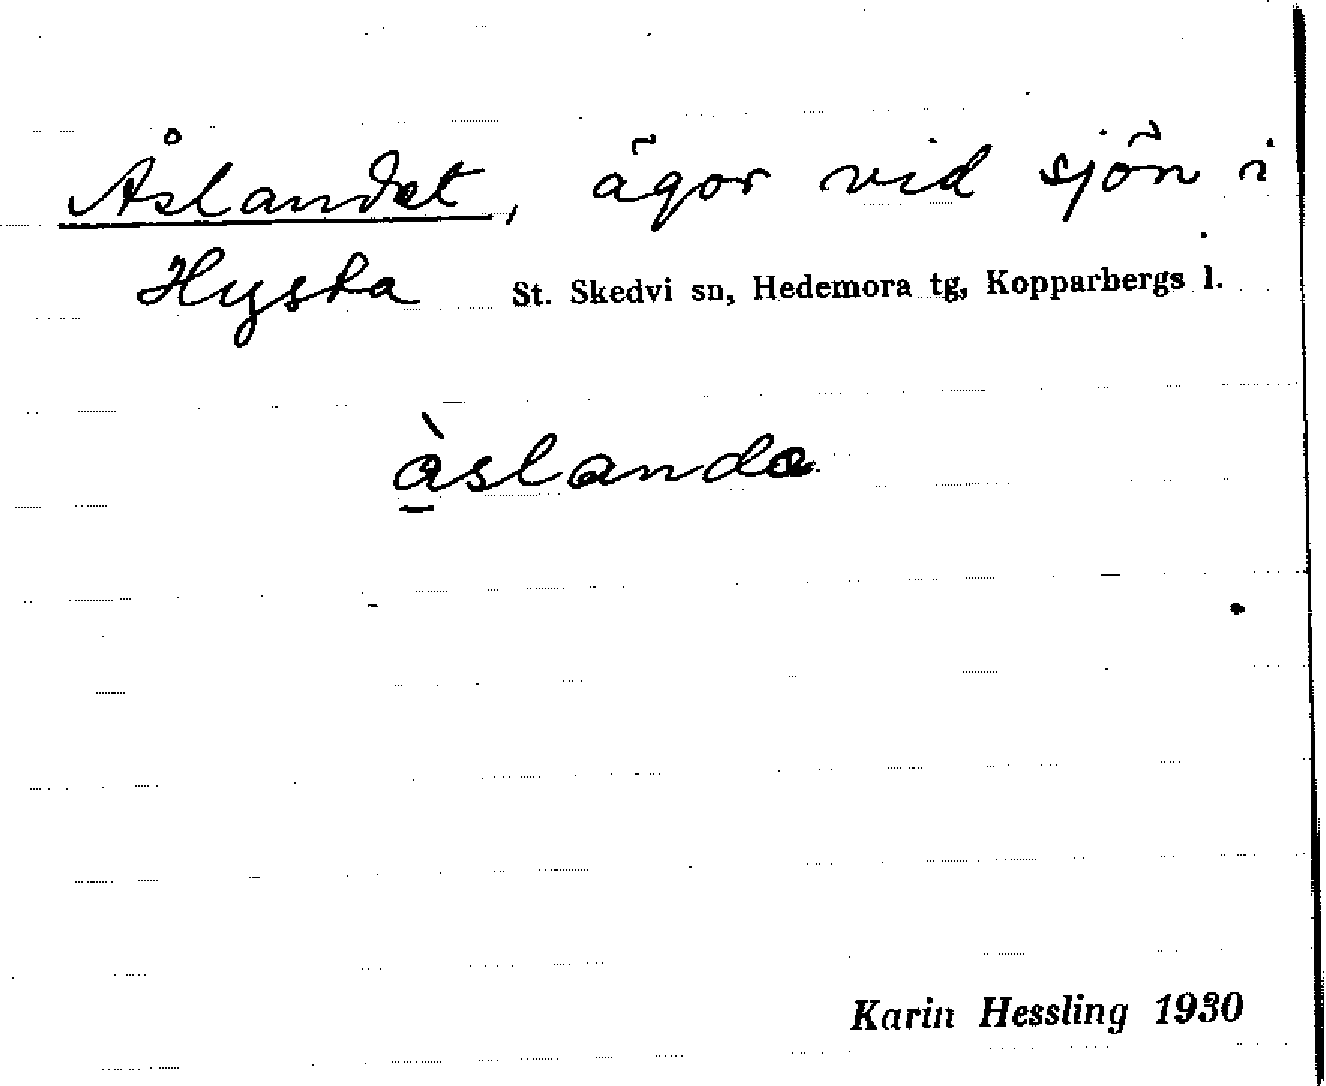 Åslandet, ägor vid sjön i
Hysta St. Skedvi sn, Hedemora tg, Kopparbergs l.
ą̀slanda
Karin Hessling 1930